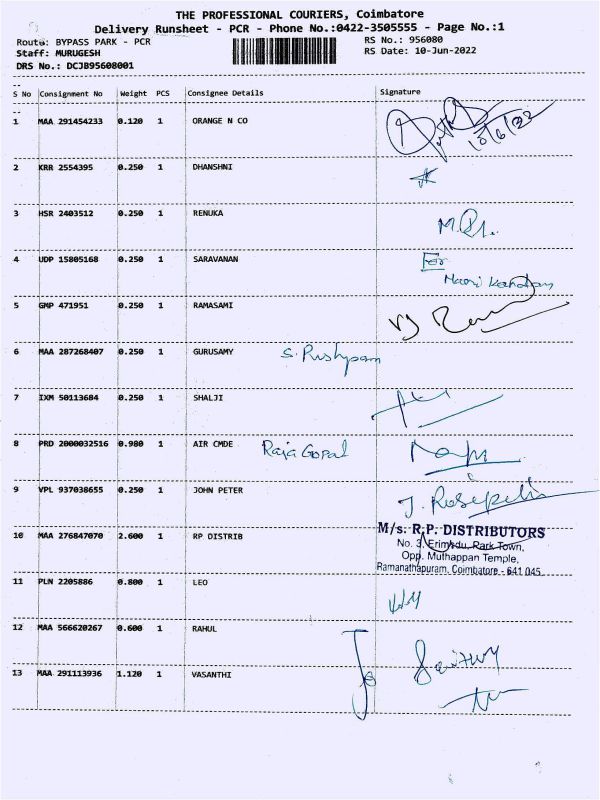 THE PROFESSIONAL COURIERS, Coimbatore
Delivery Runsheet - PCR - Phone No.:0422-3505555 - Page No.:1
Route: BYPASS PARK - PCR RS No.: 956080
Staff: MURUGESH RS Date: 10-Jun-2022
DRS No.: DCJB95608001
S No Consignment No Weight PCS Consignee Details Signature
1 MAA 291454233 0.120 1 ORANGE N CO
10/6/22
2 KRR 2554395 0.250 1 DHANSHNI
3 HSR 2403512 0.250 1 RENUKA
4 UDP 15805168 0.250 1 SARAVANAN For
5 GMP 471951 0.250 1 RAMASAMI
6 MAA 287268407 0.250 1 GURUSAMY
7 IXM 50113684 0.250 1 SHALJI
8 PRD 2000032516 0.980 1 AIR CMDE Raja Gopal
9 VPL 937038655 0.250 1 JOHN PETER
10 MAA 276847070 2.600 1 RP DISTRIB
M/s. R.P. DISTRIBUTORS
No. 3, Park Town,
Opp. Muthappan Temple,
Ramanathapuram, Coimbatore - 641 045.
11 PLN 2205886 0.800 1 LEO
12 MAA 566620267 0.600 1 RAHUL
13 MAA 291113936 1.120 1 VASANTHI